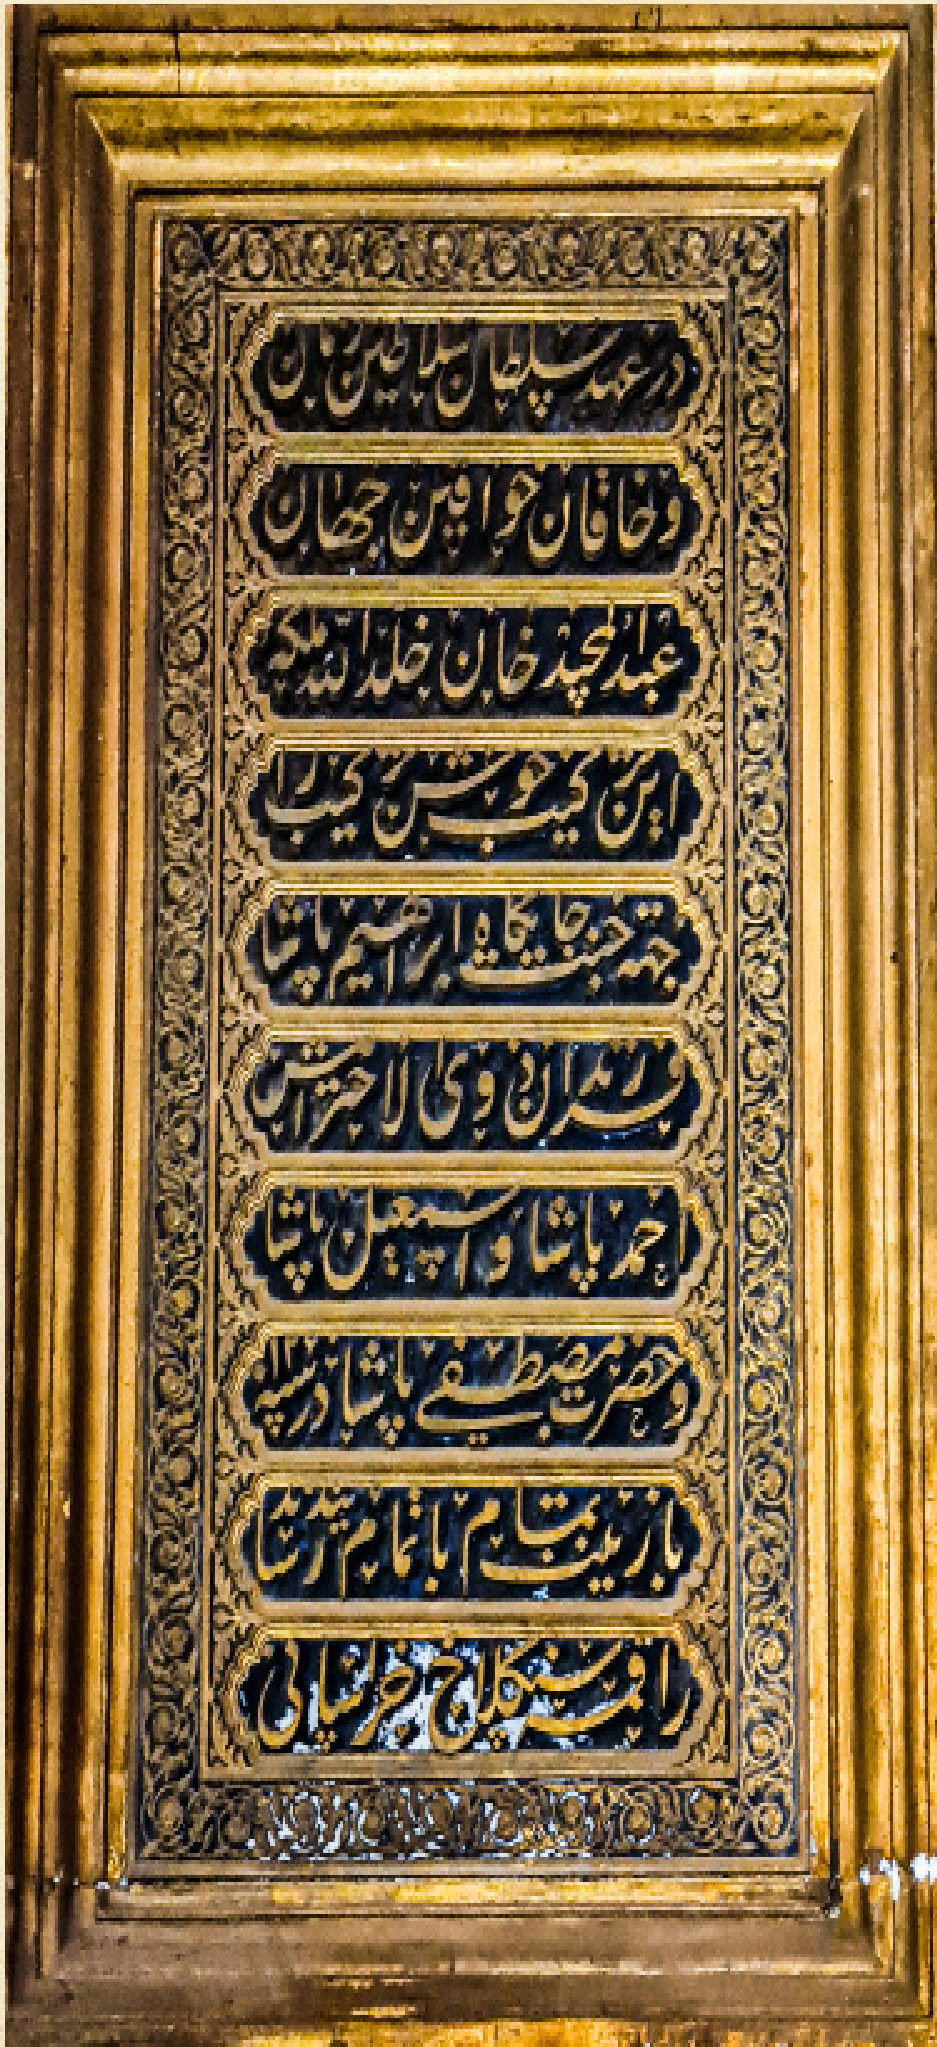 در عهد سلطان سلاطین زمان
و خاقان خواقین جهان
عبدالمجید خان خلد الله ملکه
این ترکیب خوش ترکیب را
جهة جنت جایگاه ابراهیم پاشا
فرزندان ذوی الاحترامش
احمد پاشا و اسمعیل پاشا
و حضرت مصطفی پاشا در سنه
با زینت تمام باتمام رسانیدند
راقمه سنگلاخ خراسانی